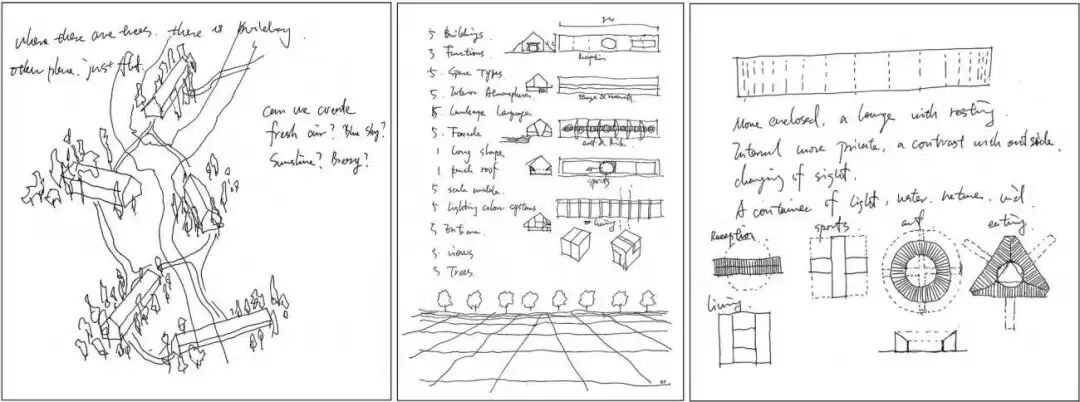 where there are trees. there is building.
other place. just flat.
Can we create
fresh air? Blue sky?
Sunshine? Breezy?
5 Buildings.
3 Functions.
5. Space Types.
5. Interior Atmospheres
5. Landscape Languages
5. Facade
1 Long shape
1 pitch roof
5 scale models.
5 Lighting colour systems.
3 Entrance.
3. views
5 Trees.
Reception
eat & drink
sports
living
More enclosed, a lounge with resting.
Internal more private, a contrast with outside.
changing of sight.
A container of light, water. nature. wind.
Reception
sports
art
eating
living.